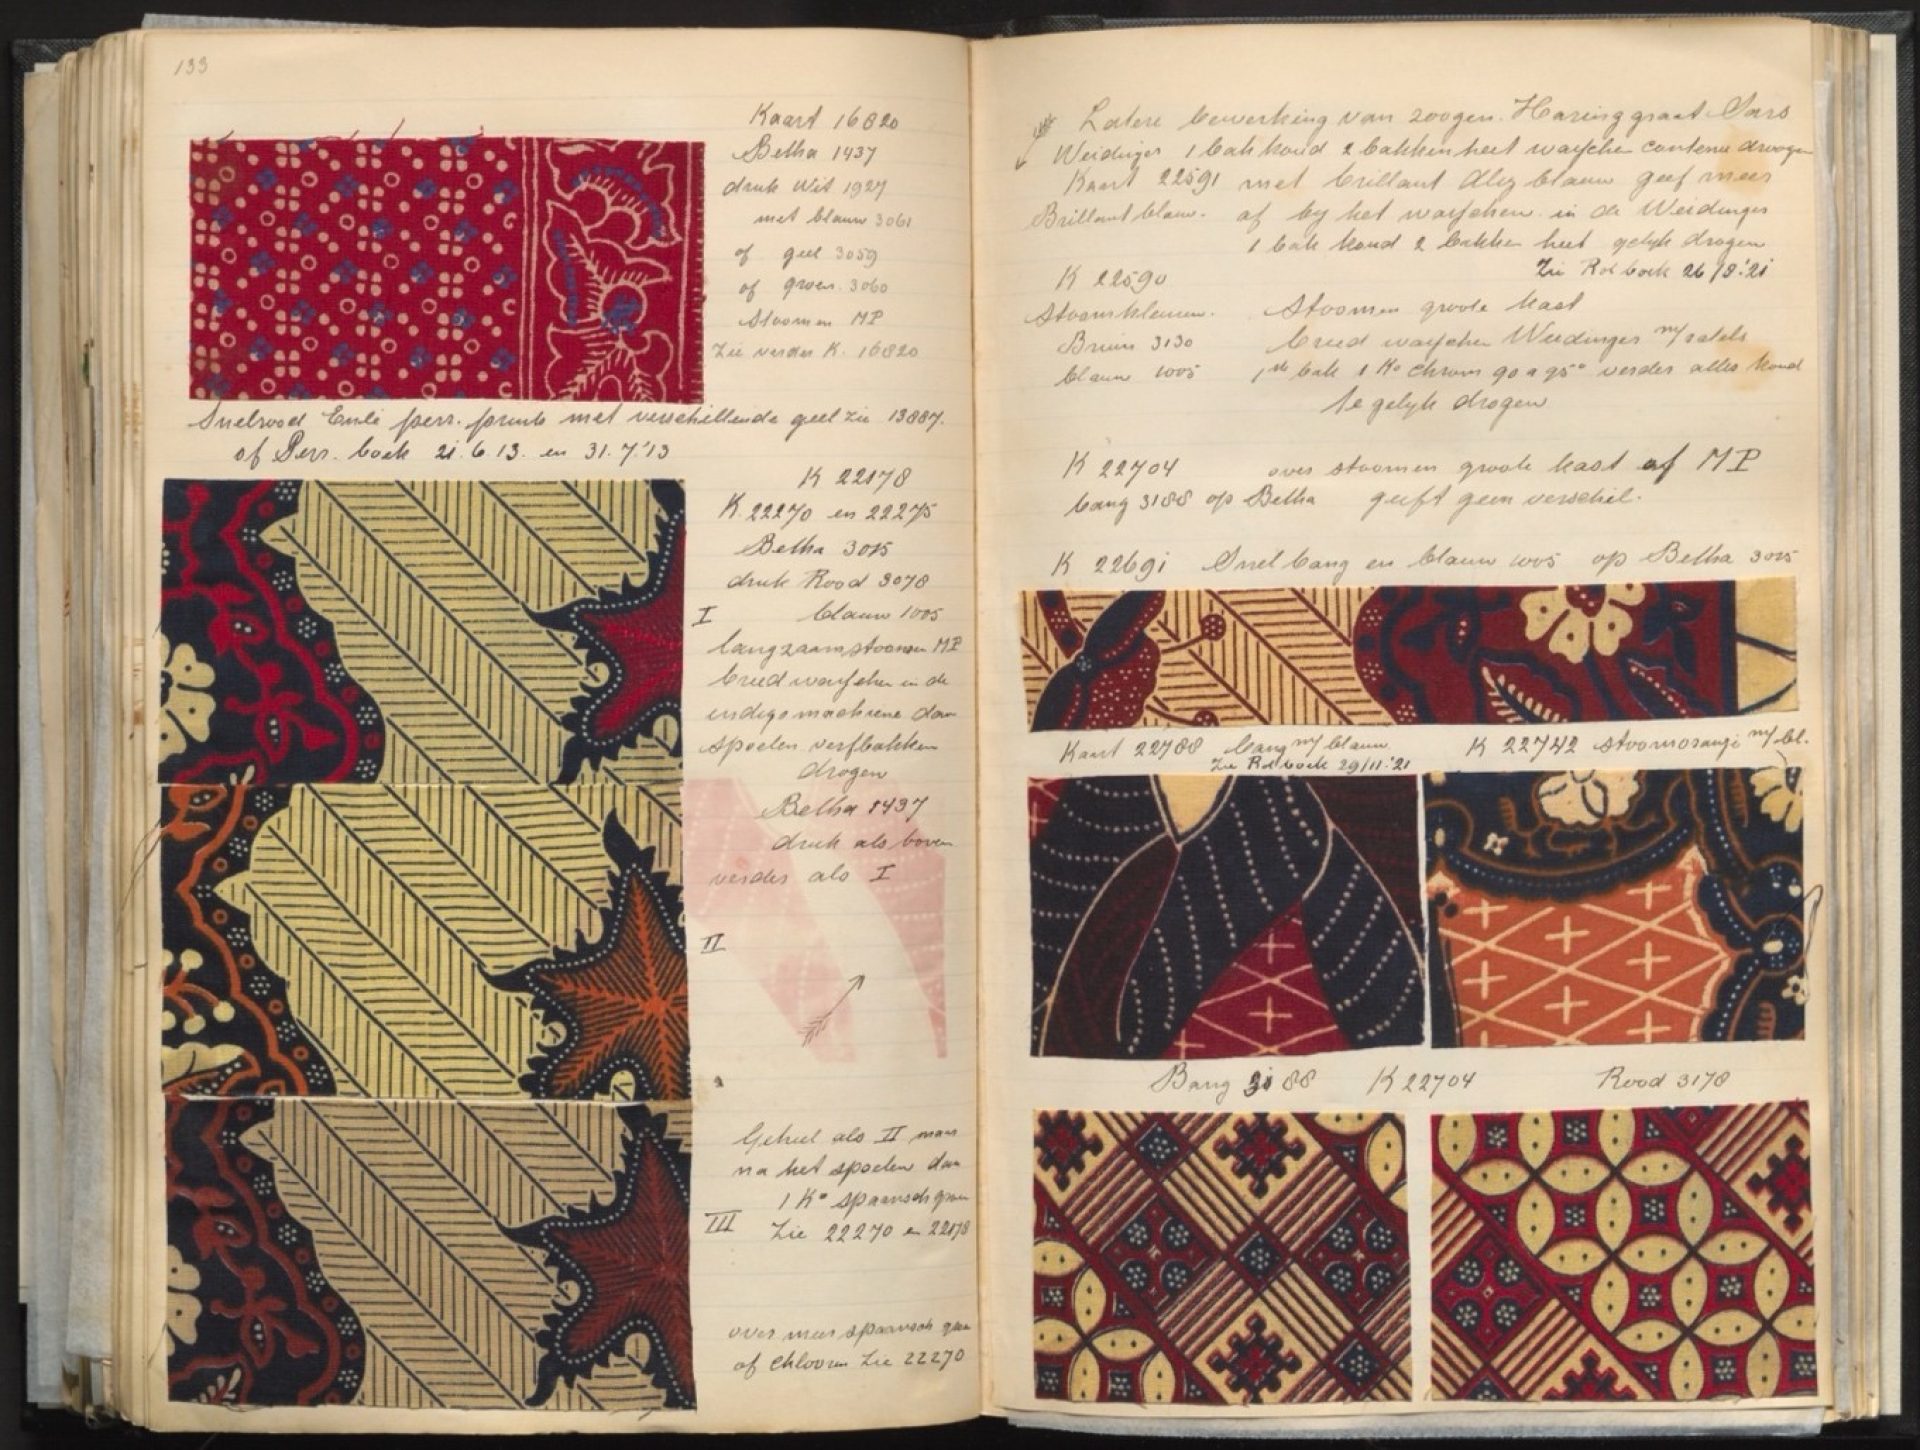 133
Kaart 16820
Betha 1437
druk Wit 1927
met blauw 3061
of geel 3059
of groen. 3060
Stoomen MP
Zie verder K. 16820
Snelrood Enle pers. print met verschillende geel zie 13887.
of Pers. boek 21.6 13. en 31.7.'13
K 22178
K. 22270 en 22275
Betha 3015
druk Rood 3078
I blauw 1005
langzaam stoomen MP
breed wasschen in de
indigo machiene dan
spoelen verfbakken
drogen
Betha 1437
druk als boven
verder als I
II
Geheel als II maar
na het spoelen dan
1 K° spaansch groen
III Zie 22270 en 22178
over meer spaansch groen
of chlooren Zie 22270
Latere bewerking van zoogen. Haringgraat Sars
Weidinger 1 bak koud 2 bakken heet wasschen continu droogen
Kaart 22591 met brillant Aliz blauw geef meer
Brillant blauw. af bij het wasschen in de Weidinger
1 bak koud 2 bakken heet gelijk drogen
Zie Rol boek 26/8.'21
K 22590
Stoomkleuren. Stoomen groote kast
Bruin 3130 breed wasschen Weidinger m/ ratels
blauw 1005 1ste bak 1 K° chroom 90 a 95° verder alles koud
te gelijk drogen
K 22704 over stoomen groote kast of MP
bang 3188 op Betha geeft geen verschil.
K 22691 Snel bang en blauw 1005 op Betha 3015
Kaart 22788 bang m/ blauw K 22742 stoomoranje m/ bl.
Zie Rol boek 29/11.'21
Bang 3188 K 22704 Rood 3178